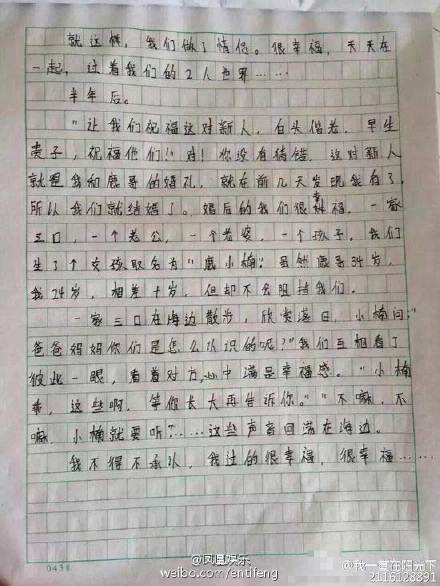 就这样，我们做了情侣。很幸福，天天在
一起，过着我们的2人世界……
半年后。
“让我们祝福这对新人，白头偕老，早生
贵子，祝福他们！”对！你没有猜错，这对新人
就是我和鹿哥的婚礼，就在前几天发现我有了，
所以我们就结婚了。婚后的我们很幸福，一家
三口，一个老公，一个老婆，一个孩子。我们
生了个女孩取名为“鹿小楠”虽然鹿哥34岁，
我24岁，相差十岁，但却不会阻挡我们。
一家三口在海边散步，欣赏落日，小楠问：“
爸爸妈妈你们是怎么认识的呢？”我们互相看了
彼此一眼，看着对方，心中满是幸福感。“小楠
乖，这些啊，等你长大再告诉你。”“不嘛，不
嘛，小楠就要听？”……这些声音回荡在海边。
我不得不承认，我过的很幸福，很幸福……
0436
@凤凰娱乐
weibo.com/entifeng
@我一直在阳光下
2116128891